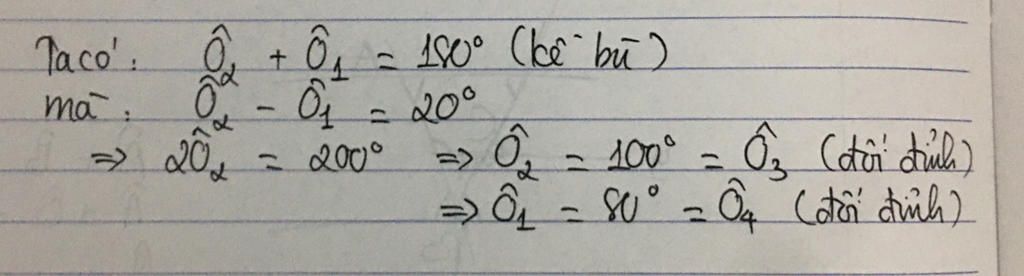 Ta có: Ô₂ + Ô₁ = 180° (kề bù)
mà: Ô₂ - Ô₁ = 20°
⇒ 2Ô₂ = 200° ⇒ Ô₂ = 100° = Ô₃ (đối đỉnh)
⇒ Ô₁ = 80° = Ô₄ (đối đỉnh)